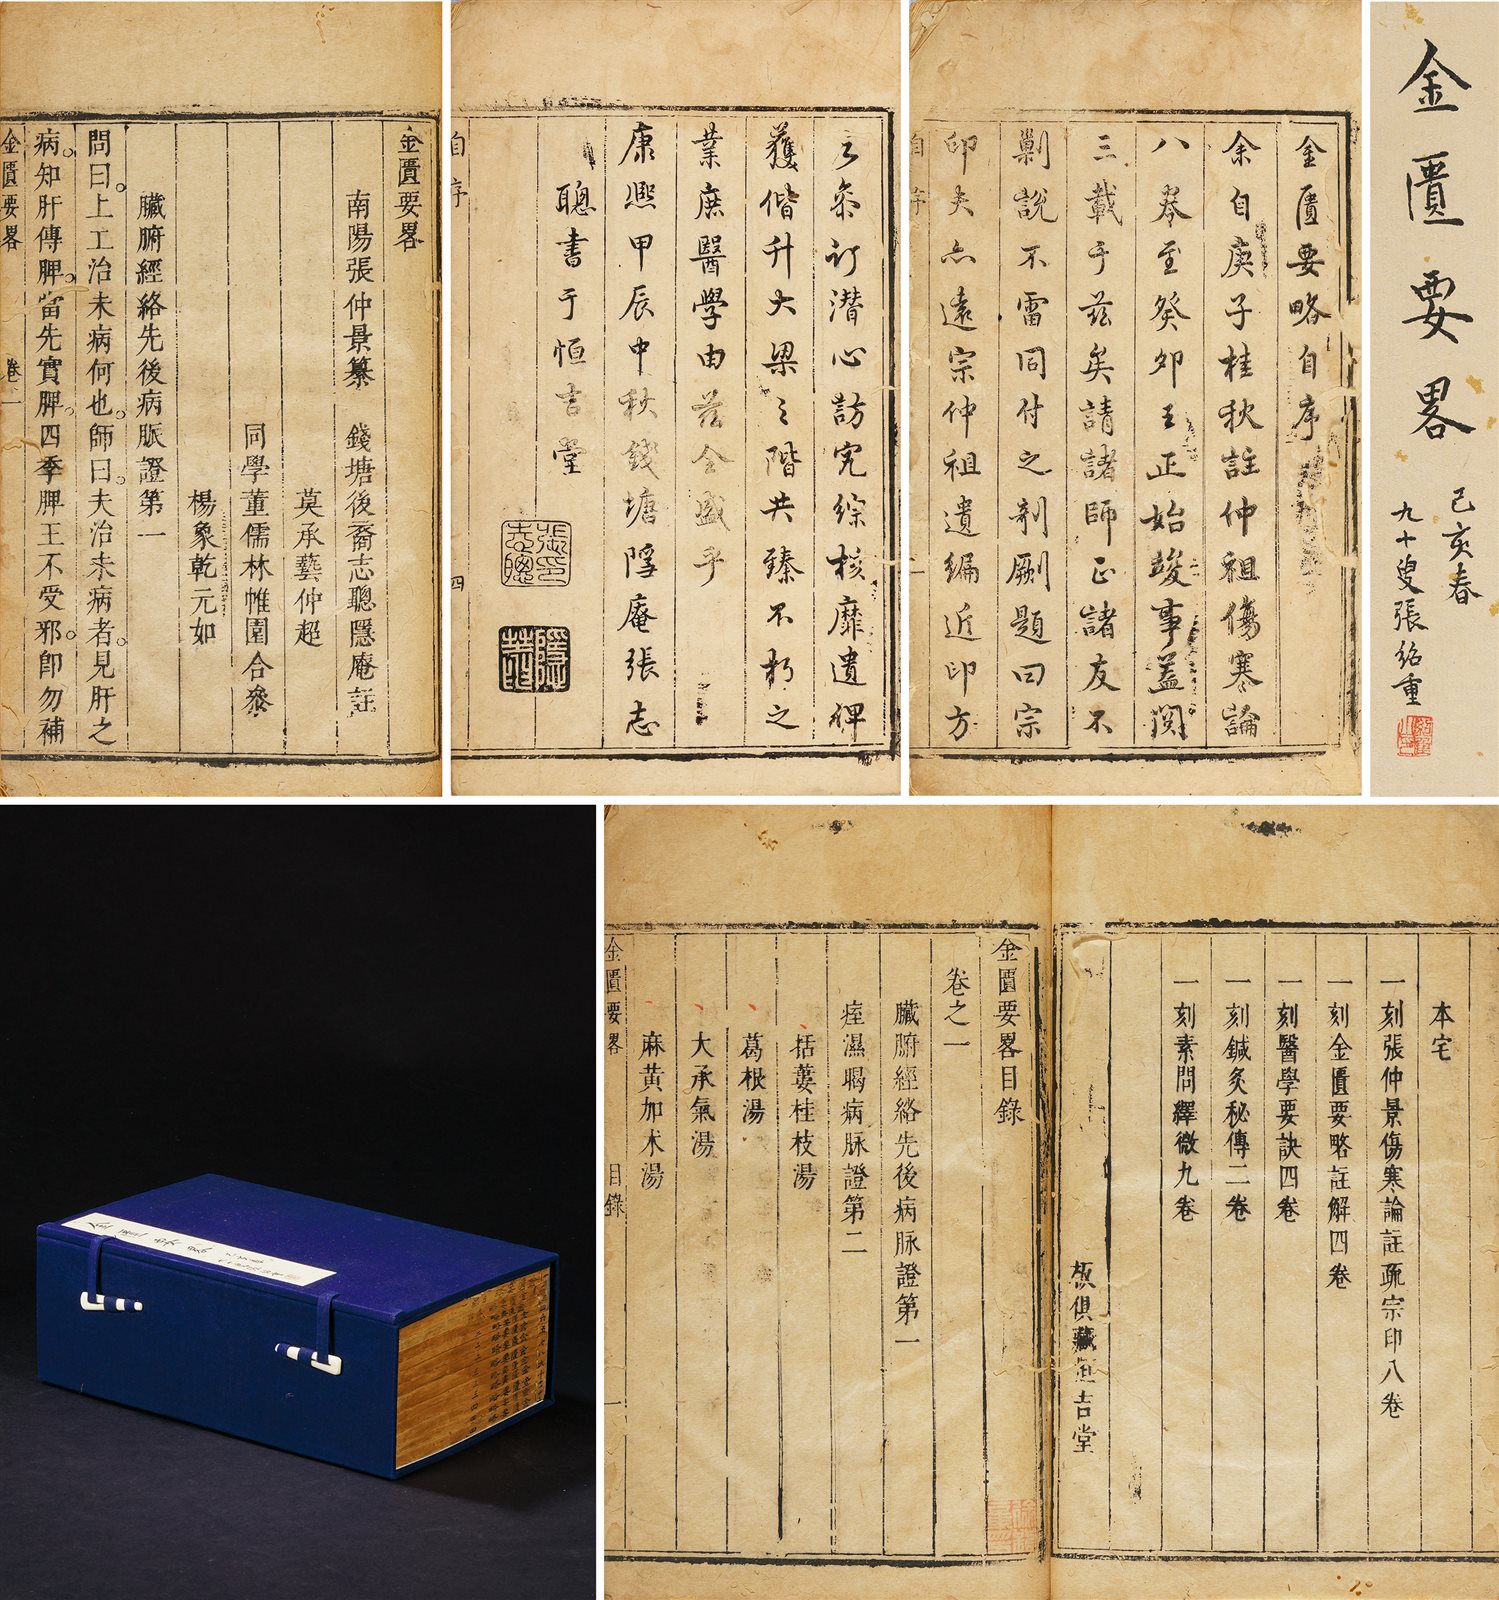 金匱要畧
己亥春
九十叟張紹重
金匱要略自序
余自庚子桂秋註仲祖傷寒論
八卷至癸卯王正始竣事蓋閱
三載于茲矣請諸師正諸友不
剿說不雷同付之剞劂題曰宗
印夫亦遠宗仲祖遺編近印方
自序
云爾訂潛心訪究綜核靡遺俾
獲偕升大梁之階共臻不朽之
業庶醫學由茲全盛乎
康熙甲辰中秋錢塘隱庵張志
聰書于恒吉堂
張志聰印
自序
四
金匱要畧
南陽張仲景纂 錢塘後裔志聰隱庵註
莫承藝仲超
同學董儒林帷園合叅
楊象乾元如
臟腑經絡先後病脈證第一
問曰上工治未病何也師曰夫治未病者見肝之
病知肝傳脾當先實脾四季脾王不受邪卽勿補
金匱要畧 卷一
本宅
一刻張仲景傷寒論註疏宗印八卷
一刻金匱要略註解四卷
一刻醫學要訣四卷
一刻鍼灸秘傳二卷
一刻素問繹微九卷
板俱藏恒吉堂
金匱要畧目錄
卷之一
臟腑經絡先後病脉證第一
痓濕暍病脉證第二
括蔞桂枝湯
葛根湯
大承氣湯
麻黃加朮湯
金匱要畧 目錄
金匱要畧